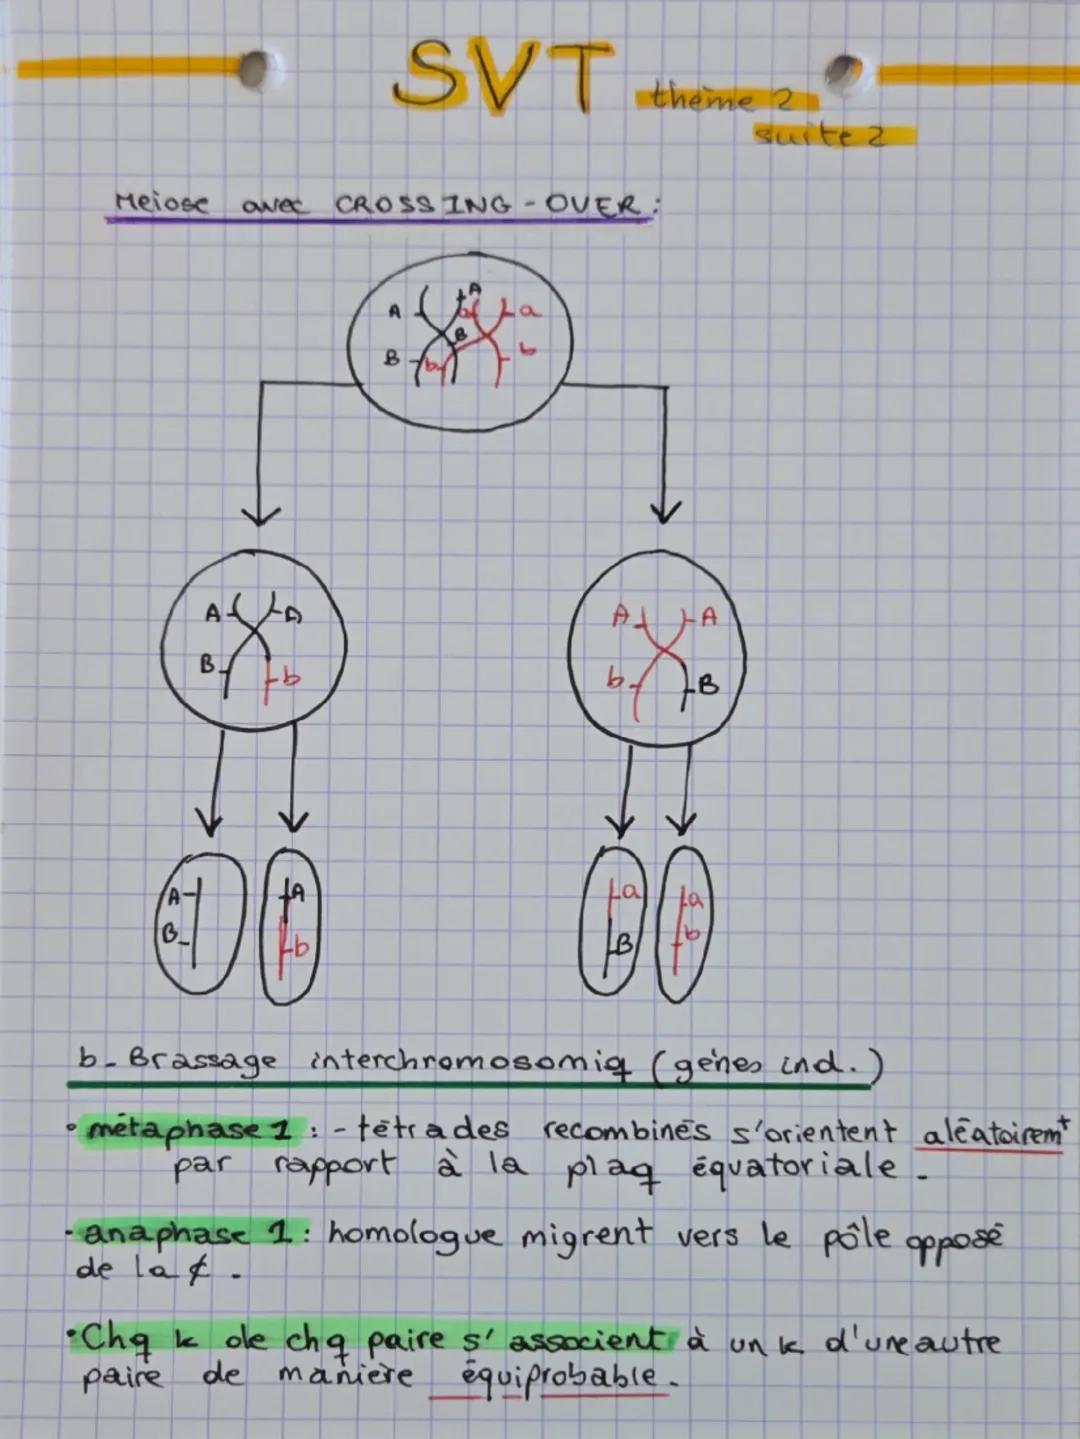 SVT thème 2
suite 2
Meiose avec CROSSING-OVER :
A A b a
B B b b
A A
B b
A A
b B
A A a a
B b B b
b- Brassage interchromosomiq (gènes ind.)
• métaphase 1 : - tétrades recombinés s'orientent aléatoirem^t
par rapport à la plaq équatoriale .
- anaphase 1 : homologue migrent vers le pôle opposé
de la ¢ .
• Chq k de chq paire s'associent à un k d'une autre
paire de manière équiprobable .